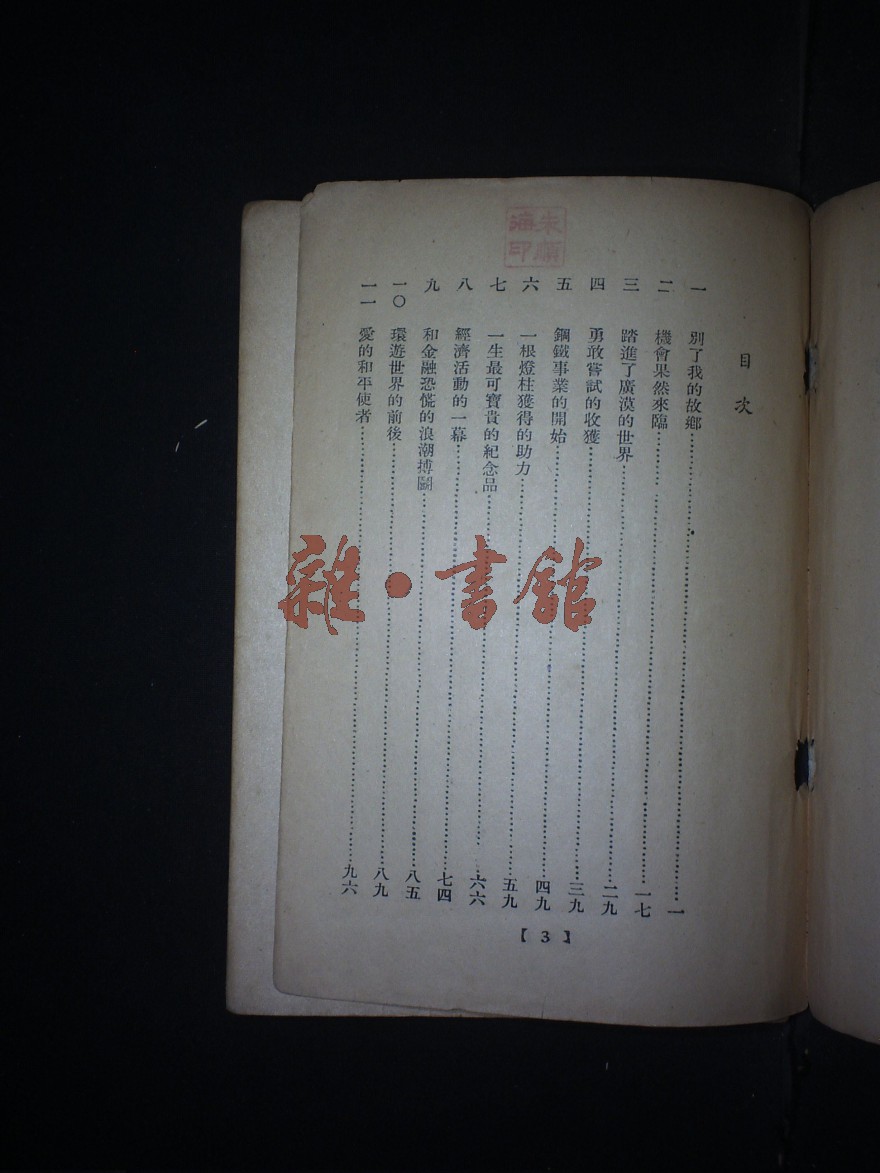 朱順
海印
目次
一 別了我的故鄉…………一
二 機會果然來臨…………一七
三 踏進了廣漠的世界…………二九
四 勇敢嘗試的收獲…………三九
五 鋼鐵事業的開始…………四九
六 一根燈柱獲得的助力…………五九
七 一生最可寶貴的紀念品…………六六
八 經濟活動的一幕…………七四
九 和金融恐慌的浪潮搏鬭…………八五
一〇 環遊世界的前後…………八九
一一 愛的和平使者…………九六
【3】
雜·書館